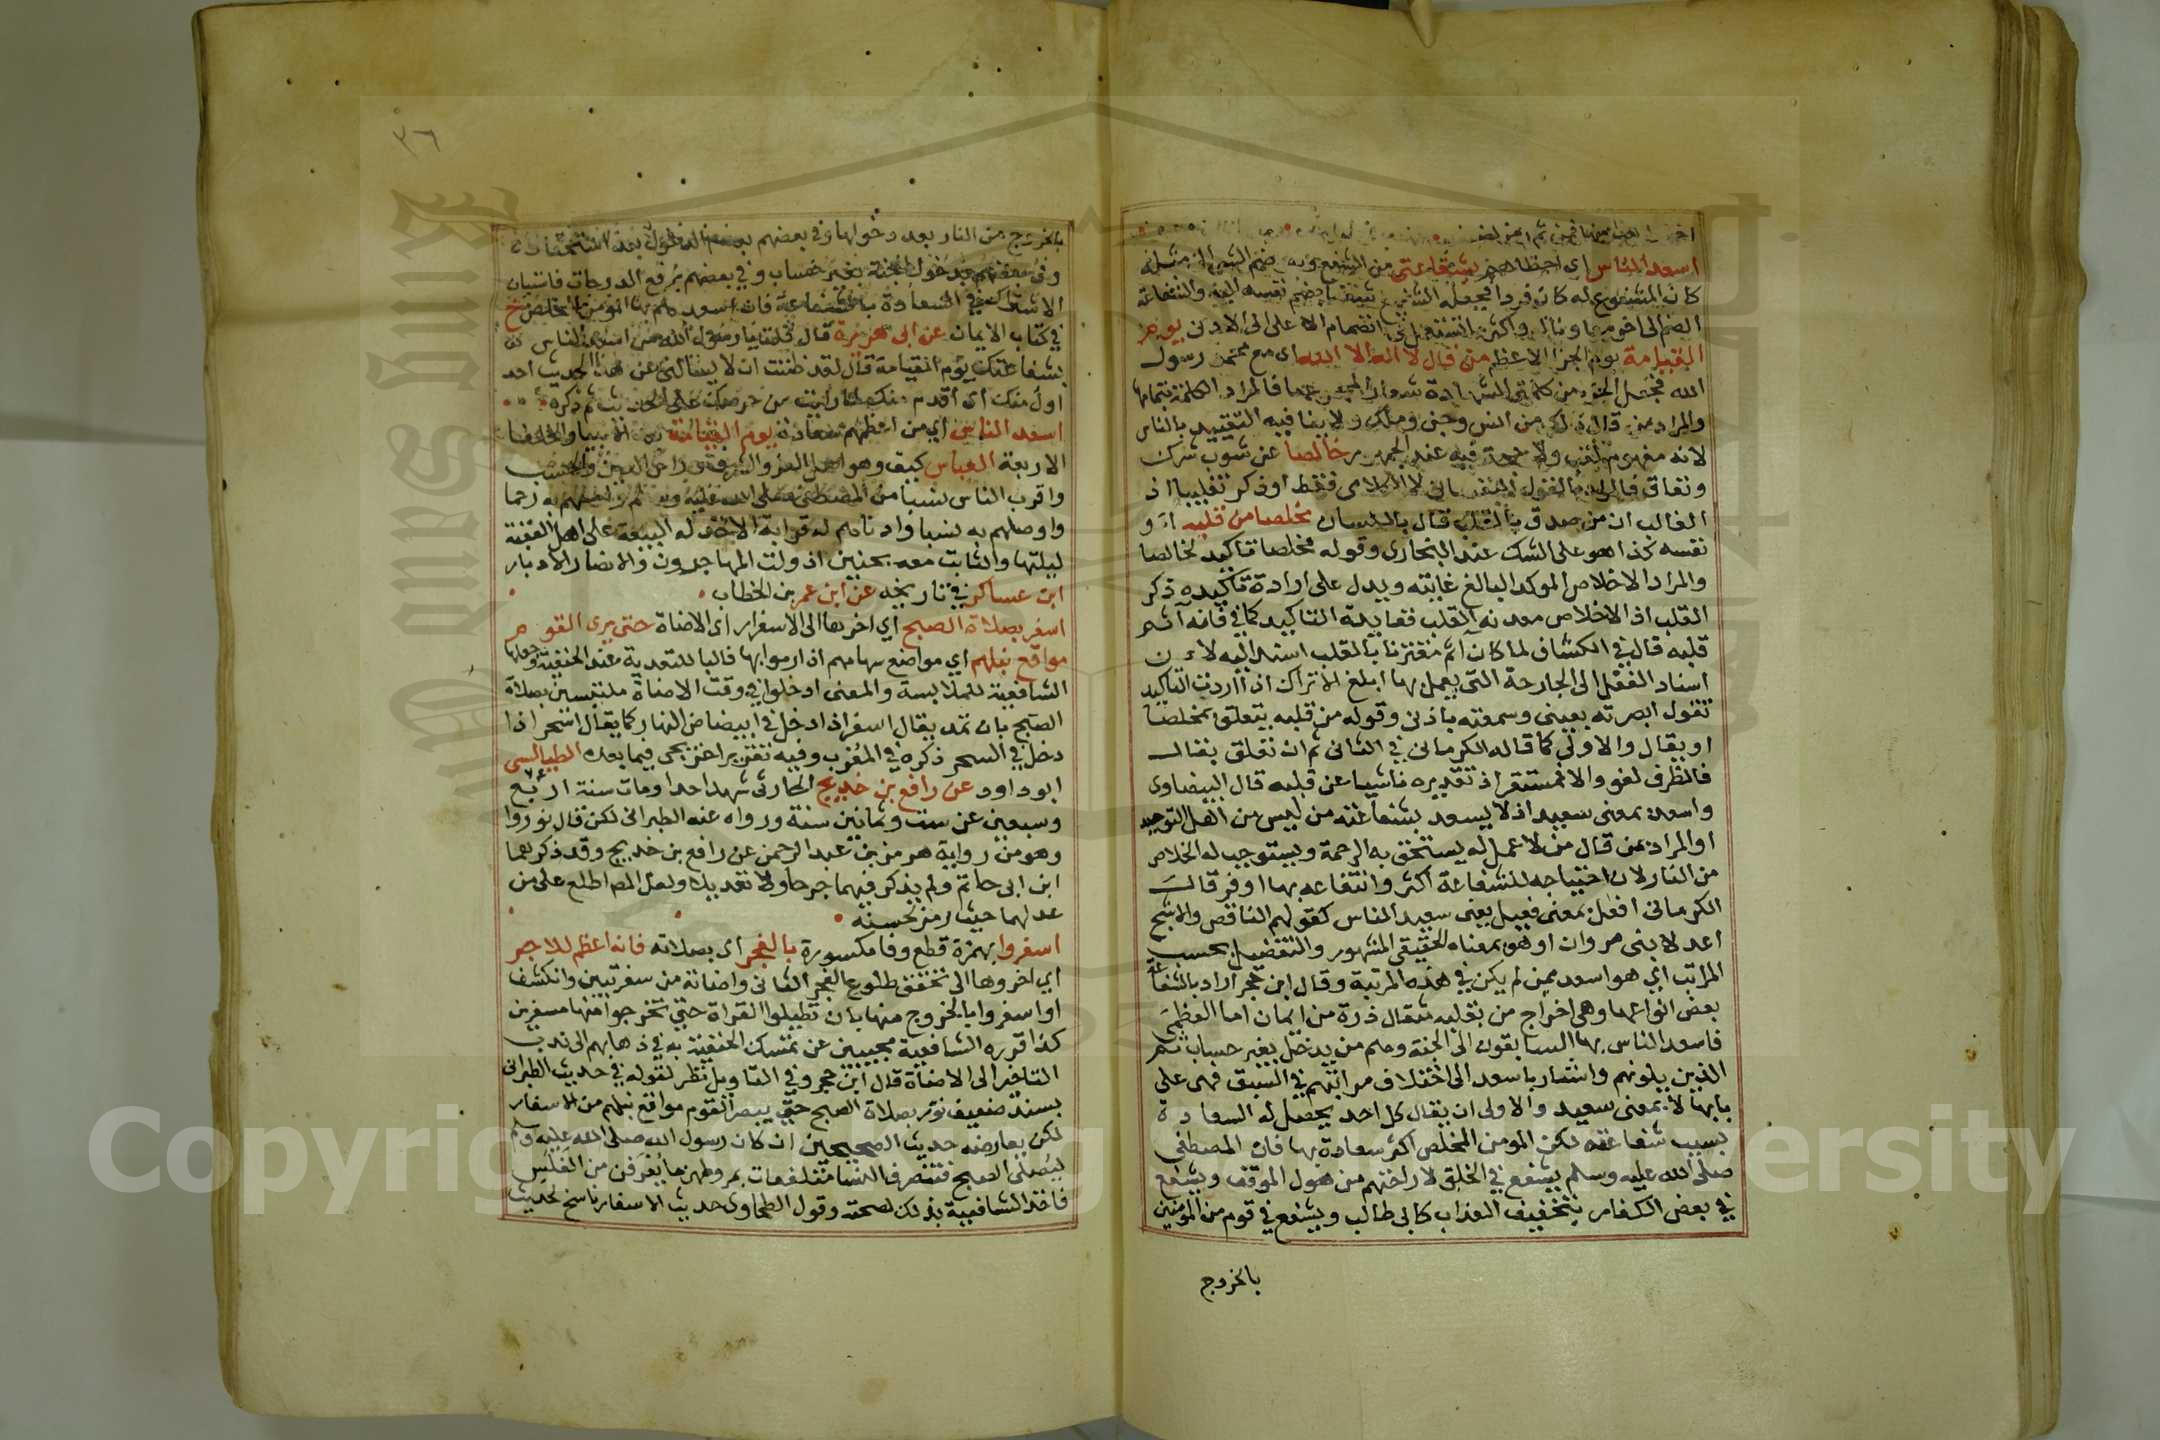 اسعد الناس اي احظاهم بشفاعتي من الشفع وهو ضم الشي الى مثله
كان المشفوع له كان فردا فجعله الشفيع شفعا بضم نفسه اليه والشفاعة
الضم الى اخر معاونا له واكثر ما تستعمل في انضمام الاعلى الى الادنى يوم
القيامة يوم الجزا الاعظم من قال لا اله الا الله اي مع محمد رسول
الله فجعل الجزء من كلمتي الشهادة شعارا لمجموعهما فالمراد الكلمة بتمامها
والمراد من قال ذلك من انس وجن وملك ولا ينافيه التقييد بالناس
لانه مفهوم لقب ولا حجة فيه عند الجمهور خالصا عن شوب شرك
ونفاق فالمراد بالقول النفساني لا الكلامي فقط او ذكر تغليبا اذ
الغالب ان من صدق بالقلب قال باللسان مخلصا من قلبه او
نفسه كذا هو على الشك عند البخاري وقوله مخلصا تاكيد لخالصا
والمراد الاخلاص الموكد البالغ غايته ويدل على ارادة تاكيده ذكر
القلب اذ الاخلاص معدنه القلب ففايدته التاكيد كما في فانه آثم
قلبه قال في الكشاف لما كان آثم مقترنا بالقلب اسند اليه لان
اسناد الفعل الى الجارحة التي يعمل بها ابلغ الا تراك اذا اردت التاكيد
تقول ابصرته بعيني وسمعته باذني وقوله من قلبه يتعلق بمخلصا
او بقال والاولى كما قاله الكرماني في الثاني ثم ان تعلق بقال
فالظرف لغو والا فمستقر اذ تقديره ناشيا عن قلبه قال البيضاوي
واسعد بمعنى سعيد اذ لا يسعد بشفاعته من ليس من اهل التوحيد
او المراد بمن قال من لا عمل له يستحق به الرحمة ويستوجب له الخلاص
من النار لان احتياجه للشفاعة اكثر وانتفاعه بها اوفر قال
الكرماني افعل بمعنى فعيل يعني سعيد الناس كقولهم الناقص والاشج
اعدلا بني مروان او هو بمعناه الحقيقي المشهور والتفضيل بحسب
المراتب اي هو اسعد ممن لم يكن في هذه المرتبة وقال ابن حجر اراد بالشفاعة
بعض انواعها وهي اخراج من بقلبه مثقال ذرة من ايمان اما العظمى
فاسعد الناس بها السابقون الى الجنة وهم من يدخل بغير حساب ثم
الذين يلونهم واشار باسعد الى اختلاف مراتبهم في السبق فهي على
بابها لا بمعنى سعيد والاولى ان يقال كل احد يحصل له السعادة
بسبب شفاعته لكن المومن المخلص اكثر سعادة بها فان المصطفى
صلى الله عليه وسلم يشفع في الخلق لاراحتهم من هول الموقف ويشفع
في بعض الكفار بتخفيف العذاب كابي طالب ويشفع في قوم من المومنين
بالخروج
٣٦
بالخروج من النار بعد دخولها وفي بعضهم بعدم الدخول بعد استحقاقه
وفي بعضهم بدخول الجنة بغير حساب وفي بعضهم برفع الدرجات فاستبان
الاشتراك في السعادة بالشفاعة فان اسعدهم بها المومن المخلص خ
في كتاب الايمان عن ابي هريرة قال قلت يا رسول الله من اسعد الناس
بشفاعتك يوم القيامة قال لقد ظننت ان لا يسالني عن هذا الحديث احد
اول منك اي اقدم منك لما رايت من حرصك على الحديث ثم ذكره
اسعد الناس اي من اعظمهم سعادة يوم القيامة بعد الانبيا والخلفا
الاربعة العباس كيف وهو اصل العز والشرف
واقرب الناس نسبا من المصطفى صلى الله عليه وسلم وامسهم به رحما
واوصلهم به نسبا وادناهم له قرابة الاخذ له البيعة على اهل العقبة
ليلتها والثابت معه بحنين اذ ولت المهاجرون والانصار الادبار
ابن عساكر في تاريخه عن ابن عمر بن الخطاب
اسفر بصلاة الصبح اي اخرها الى الاسفرار اي الاضاة حتى يرى القوم
مواقع نبلهم اي مواضع سهامهم اذا رموا بها فالبا للتعدية عند الحنفية وجعلها
الشافعية للملابسة والمعنى ادخلوا في وقت الاضاة ملتبسين بصلاة
الصبح بان تمد يقال اسفر اذا دخل في ابيضاض النهار كما يقال اسحر اذا
دخل في السحر ذكره في المغرب وفيه تقرير اخر يجي فيما بعده الطيالسي
ابو داود عن رافع بن خديج الحارثي شهد احدا ومات سنة اربع
وسبعين عن ست وثمانين سنة ورواه عنه الطبراني لكن قال نوروا
وهو من رواية هرمز بن عبد الرحمن عن رافع بن خديج وقد ذكرهما
ابن ابي حاتم ولم يذكر فيهما جرحا ولا تعديلا ولعل المص اطلع على من
عدلهما حيث رمز لحسنه
اسفروا بهمزة قطع وفا مكسورة بالفجر اي بصلاته فانه اعظم للاجر
اي اخروها الى تحقق طلوع الفجر الثاني واضاته من سفر تبين وانكشف
او اسفروا بالخروج منها بان تطيلوا القراة حتى تخرجوا منها مسفرين
كذا قرره الشافعية مجيبين عن تمسك الحنفية به في ذهابهم الى ندب
التاخير الى الاضاة قال ابن حجر وفي التاويل نظر لقوله في حديث الطبراني
بسند ضعيف نور بصلاة الصبح حتى يبصر القوم مواقع نبلهم من الاسفار
لكن يعارضه حديث الصحيحين ان كان رسول الله صلى الله عليه وسلم
ليصلي الصبح فتنصرف النسا متلفعات بمروطهن ما يعرفن من الغلس
فاخذ الشافعية بذلك لصحته وقول الطحاوي حديث الاسفار ناسخ لحديث
Copyright © King Saud University